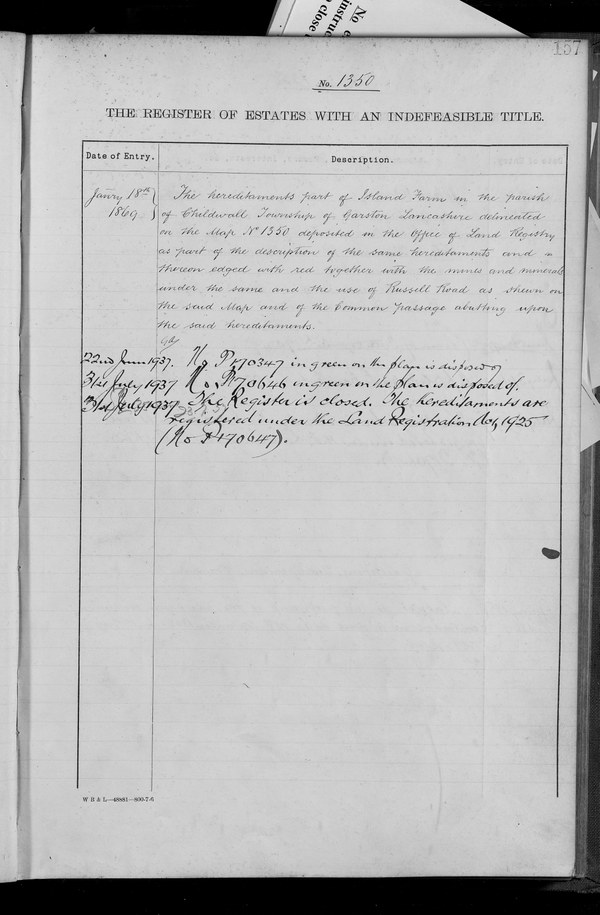 157
No. 1350
THE REGISTER OF ESTATES WITH AN INDEFEASIBLE TITLE.
Date of Entry.
Description.
Janry 18th 1869.
The hereditaments part of Island Farm in the parish
of Childwall Township of Garston Lancashire delineated
on the Map No 1350 deposited in the Office of Land Registry
as part of the description of the same hereditaments and is
thereon edged with red together with the mines and minerals
under the same and the use of Russell Road as shewn on
the said Map and of the Common passage abutting upon
the said hereditaments.
22nd June 1937. No P470347 in green on the plan is disposed of
31st July 1937 No. P470646 in green on the plan is disposed of.
31st July 1937 The Register is closed. The hereditaments are
registered under the Land Registration Act, 1925
(No P470647).
W B & L—49881—800-7-6